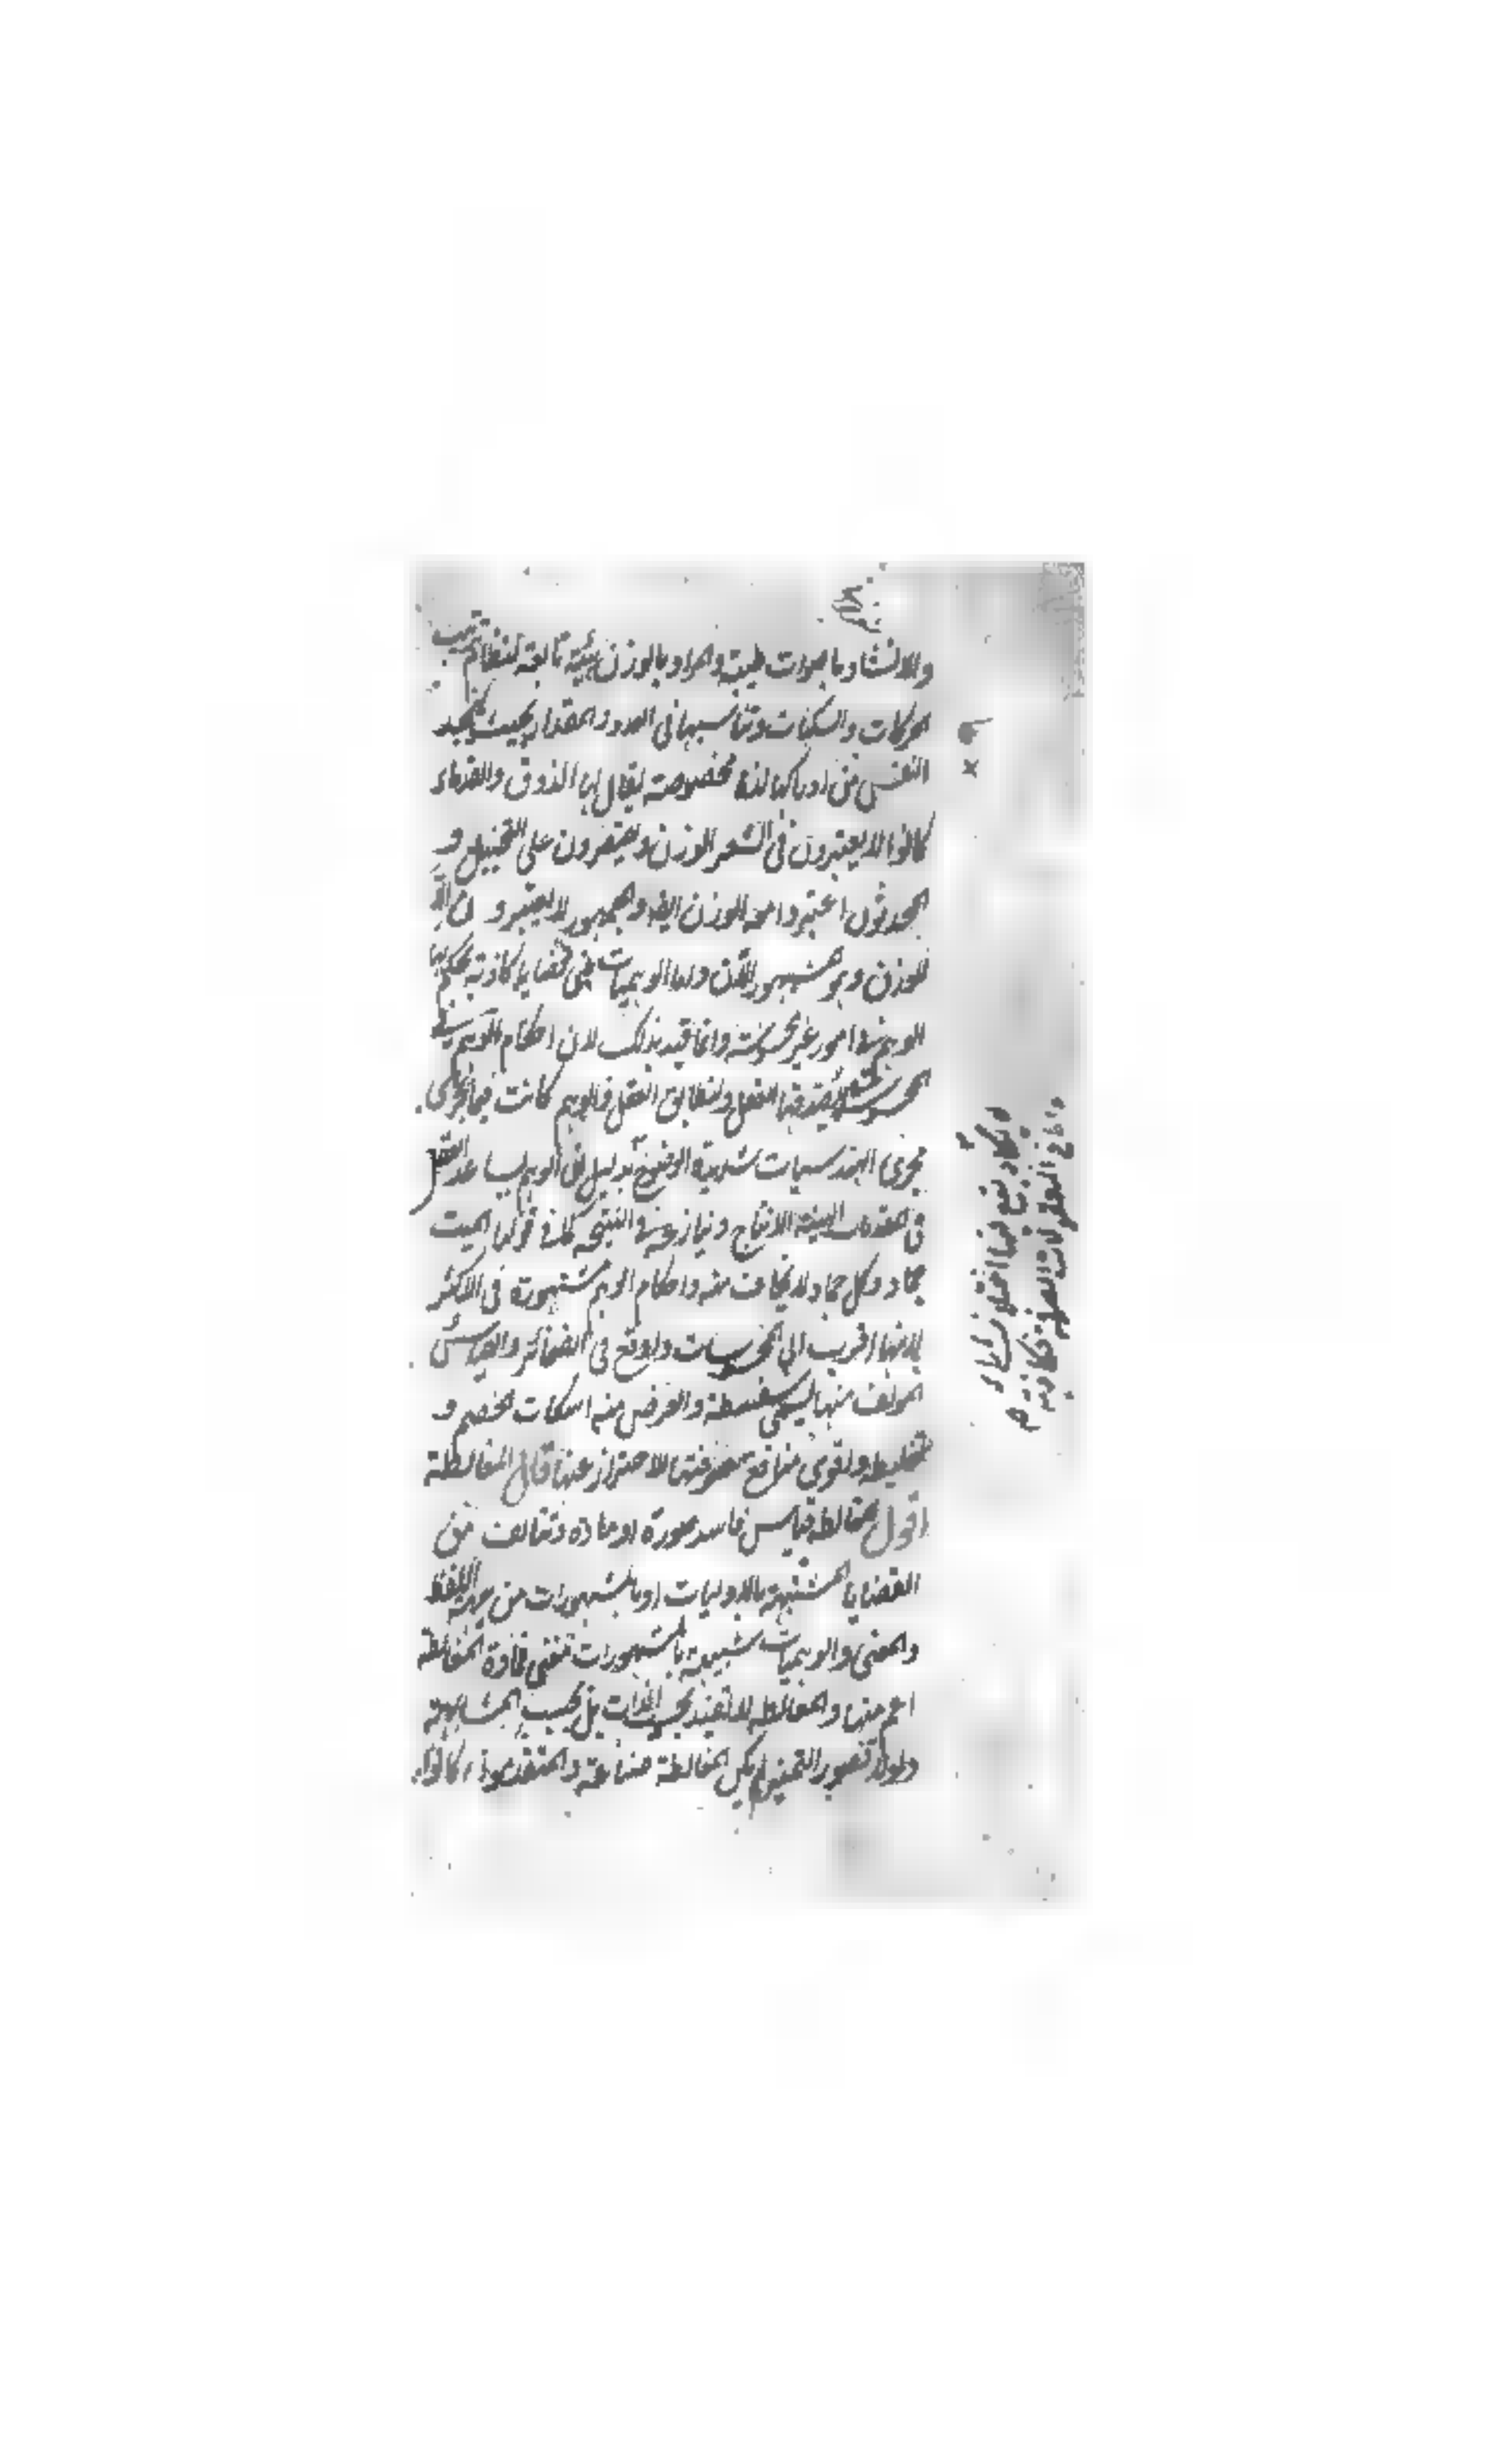 والانشاد باصوات طيبة والمراد بالوزن هيئة تابعة لنظام ترتيب
الحركات والسكنات وتناسبها في العدد والمقدار بحيث تجد
النفس من ادراكها لذة مخصوصة يقال لها الذوق والقدماء
كانوا لا يعتبرون في الشعر الوزن ويقتصرون على التخييل و
المحدثون اعتبروا معه الوزن ايضا والجمهور لا يعتبرون الا
الوزن وهو المشهور الآن واما الوهميات فهي قضايا كاذبة يحكم بها
الوهم في امور غير محسوسة وانما قيد بذلك لان احكام الوهم في
المحسوسات يصدقها العقل ولتطابق العقل والوهم كانت فيما يجري
مجرى الهندسيات شديدة الوضوح بدليل ان الوهم يساعد العقل
في المقدمات البينة الانتاج وينازعه في النتيجة كما في قولنا الميت
جماد وكل جماد لا يخاف منه واحكام الوهم مشهورة في الاكثر
لانها اقرب الى المحسوسات واوقع في الضمائر والقياس
المؤلف منها يسمى سفسطة والغرض منه اسكات الخصم و
تغليطه واقوى منافع معرفتها الاحتراز عنها قال المغالطة
اقول المغالطة قياس فاسد صورة او مادة وتتالف من
القضايا المشتبهة بالاوليات او بالمشهورات من جهة اللفظ
والمعنى والوهميات شبيهة بالمشهورات فهي مادة المغالطة
اعم منها والمغالطة لا تفيد بحسب الذات بل بحسب المشابهة
ولولا قصور التمييز لم يكن المغالطة صناعة والمتقدمون كانوا